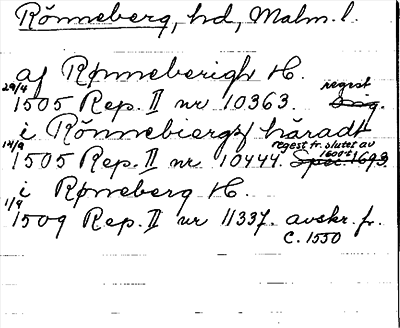 Rönneberg, hd, Malm. l.
af Rønneberigh H.
29/4 regest
1505 Rep. II nr 10363. Orig.
i Rönnebiergs häradt
14/9 regest fr. slutet av 1600 t.
1505 Rep. II nr 10444. Spec. 1693.
i Rønneberg H.
1/9
1509 Rep. II nr 11337. avskr. fr.
c. 1550